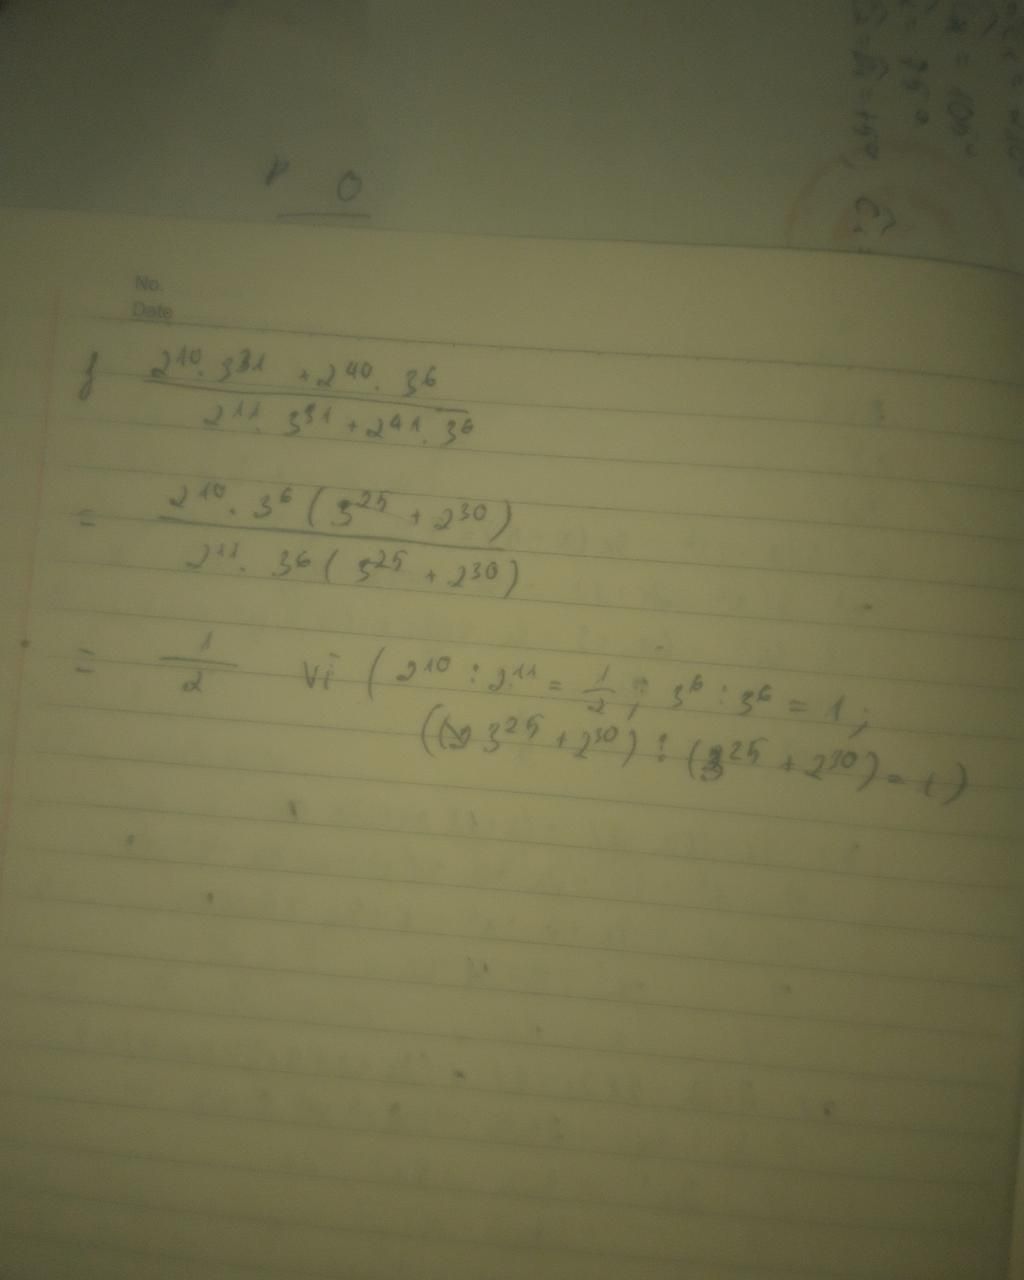 No.
Date
f 2^10 . 3^31 + 2^40 . 3^6
2^11 . 3^31 + 2^41 . 3^6
= 2^10 . 3^6 ( 3^25 + 2^30 )
2^11 . 3^6 ( 3^25 + 2^30 )
= 1/2 Vì ( 2^10 : 2^11 = 1/2 ; 3^6 : 3^6 = 1 ;
( 3^25 + 2^30 ) : ( 3^25 + 2^30 ) = 1 )